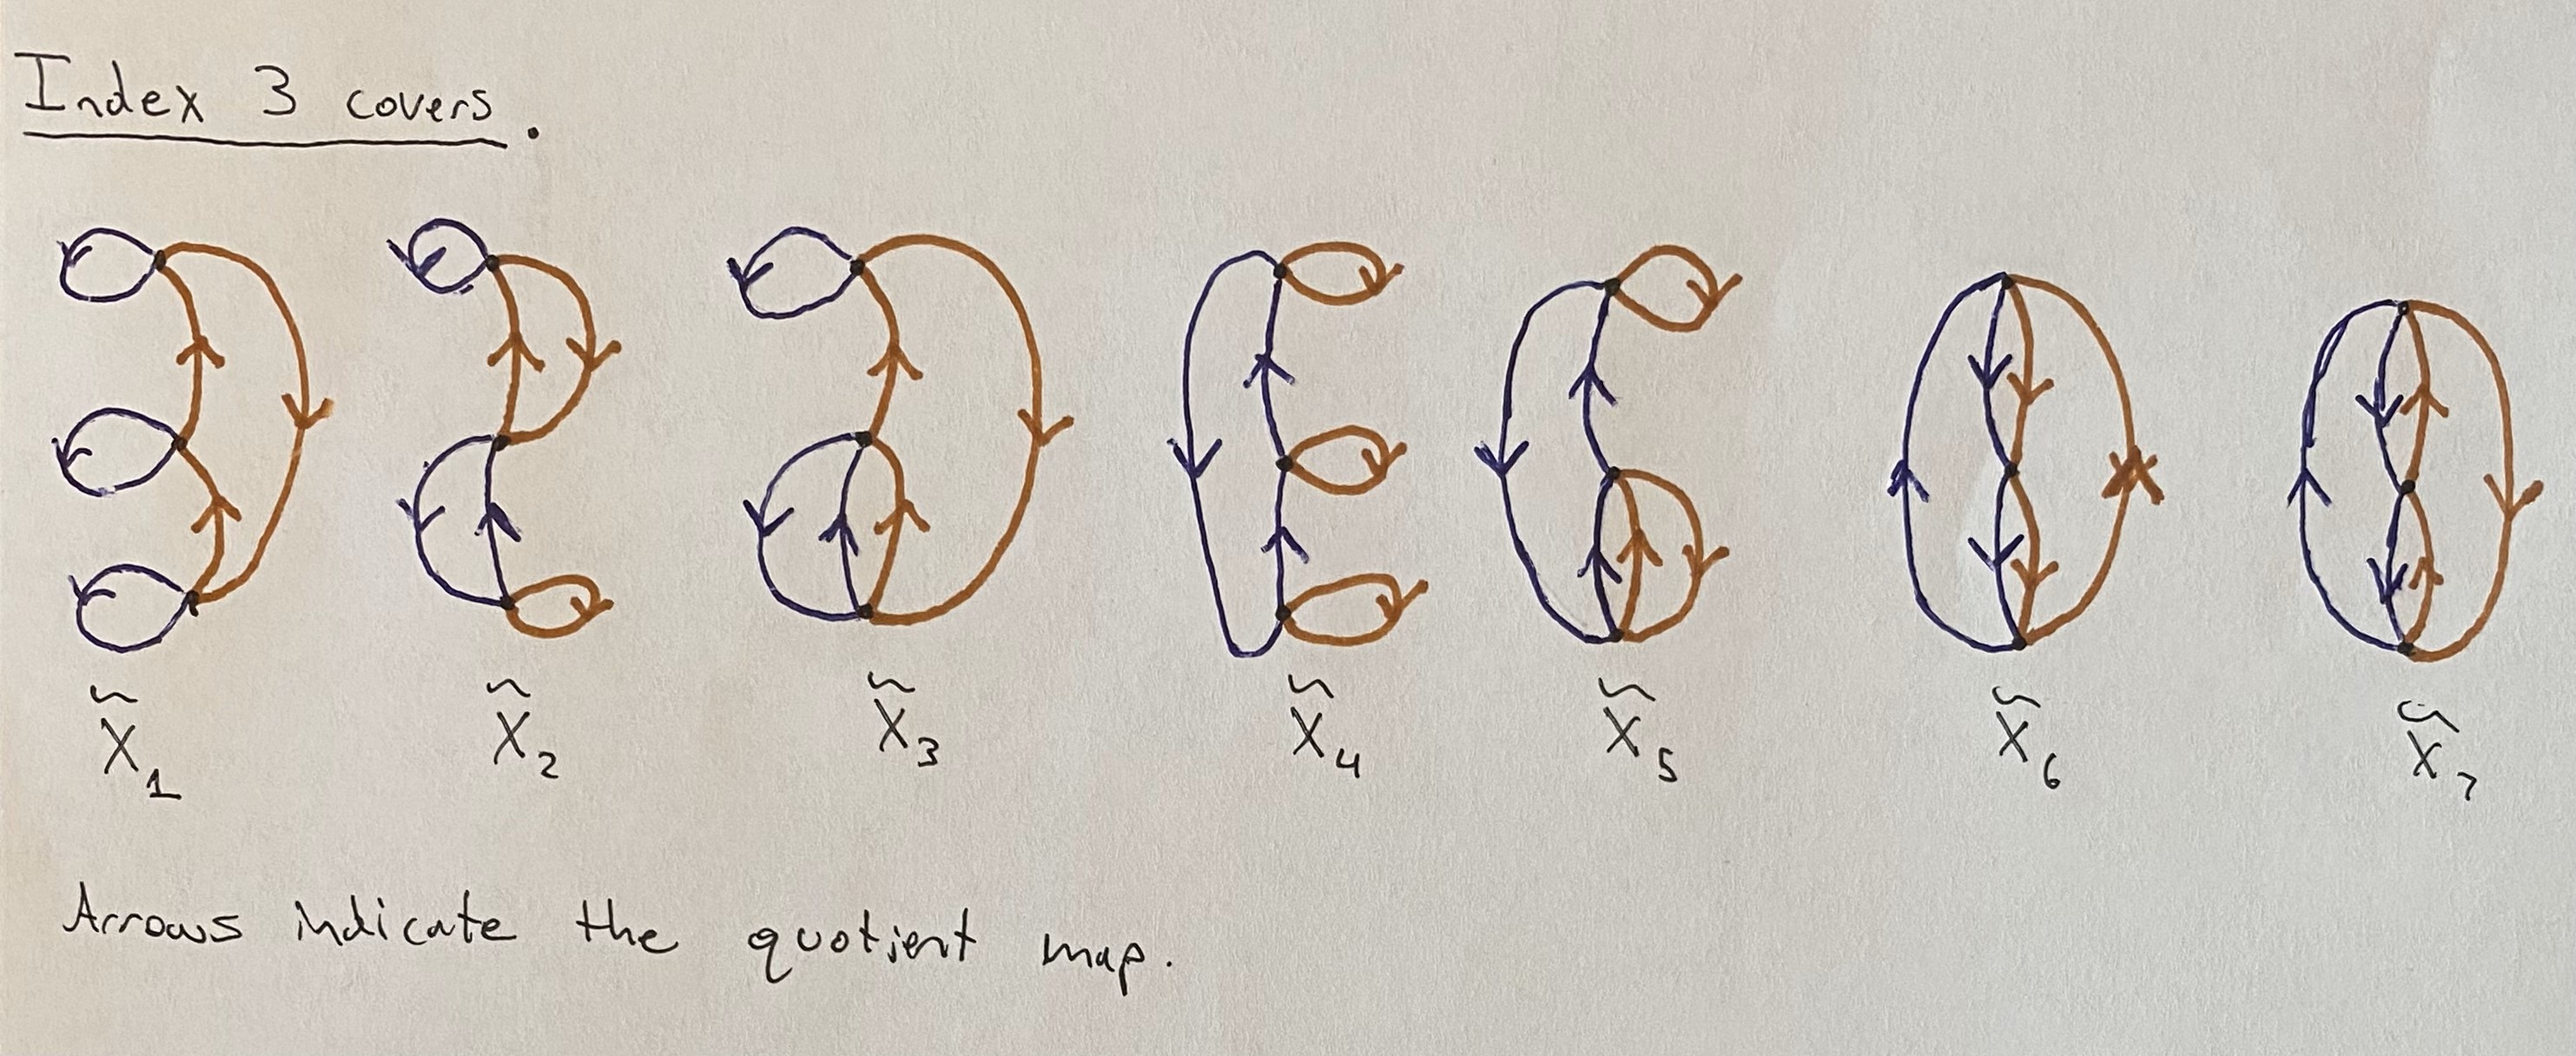 Index 3 covers.
X̃₁ X̃₂ X̃₃ X̃₄ X̃₅ X̃₆ X̃₇
Arrows indicate the quotient map.